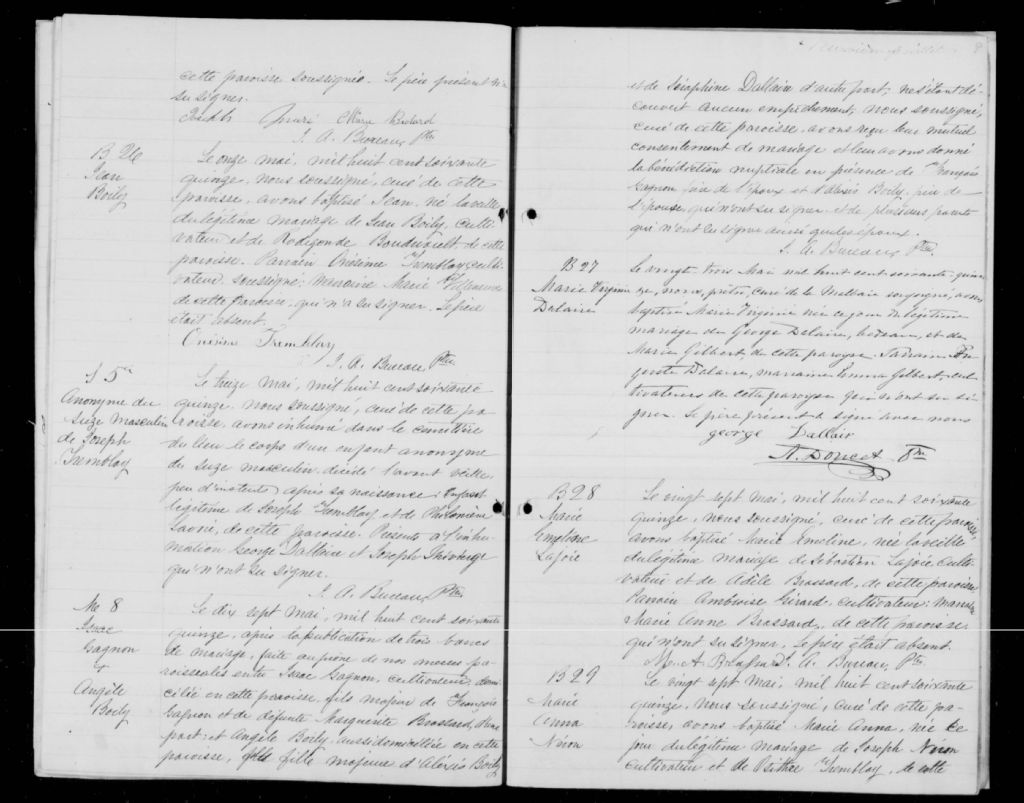 cette paroisse soussignée. Le père présent n'a
su signer.
Marie Bolard
J. A. Bureau Ptre
B 26
Jean
Boily
Le onze mai, mil huit cent soixante
quinze, nous soussigné, curé de cette
paroisse, avons baptisé Jean, né la veille
du légitime mariage de Jean Boily, culti-
vateur et de Rodégonde Boudriault de cette
paroisse. Parrain Onésime Tremblay culti-
vateur soussigné; Marraine Marie Villeneuve
de cette paroisse, qui n'a su signer. Le père
était absent.
Onésime Tremblay
J. A. Bureau Ptre
S 5e
Anonyme du
Suze masculin
de Joseph
Tremblay
Le treize mai, mil huit cent soixante
quinze, nous soussigné, curé de cette pa-
roisse, avons inhumé dans le cimetière
du lieu le corps d'un enfant anonyme
du suze masculin, décédé l'avant veille,
peu d'instants après sa naissance; enfant
légitime de Joseph Tremblay et de Philomène
Savié, de cette paroisse. Présents à l'inhu-
mation George Dallaire et Joseph
qui n'ont su signer.
J. A. Bureau, Ptre
M 8
Isaac
Gagnon
+
Angèle
Boily
Le dix sept mai, mil huit cent soixante
quinze, après la publication de trois bancs
de mariage, faite au prône de nos messes pa-
roissiales entre Isaac Gagnon, cultivateur, domi-
cilié en cette paroisse, fils majeur de François
Gagnon et de défunte Marguerite Brassard, d'une
part; et Angèle Boily, aussi domiciliée en cette
paroisse, fille majeure d'Aloïs Boily
8
et de Séraphine Dallaire d'autre part; ne s'étant dé-
couvert aucun empêchement, nous soussigné,
curé de cette paroisse, avons reçu leur mutuel
consentement de mariage et leur avons donné
la bénédiction nuptiale en présence de François
Gagnon père de l'époux et d'Alexis Boily, père de
l'épouse, qui n'ont su signer et de plusieurs parents
qui n'ont su signer ainsi que les époux.
J. A. Bureau, Ptre
B 27
Marie Virginie
Dalaire
Le vingt trois Mai mil huit cent soixante quin-
ze, nous, prêtre, curé de la Malbaie soussigné, avons
baptisé Marie Virginie née ce jour du légitime
mariage de George Dalaire, bedeau, et de
Marie Gilbert de cette paroisse. Parrain
Dalaire, marraine Emma Gilbert, cul-
tivateurs de cette paroisse qui n'ont su si-
gner. Le père présent a signé avec nous
george Dallair
A. Doucet Ptre
B 28
Marie
Emeline
Lajoie
Le vingt sept Mai, mil huit cent soixante
quinze, nous soussigné, curé de cette paroisse,
avons baptisé Marie Emeline, née la veille
du légitime mariage de Sébastien Lajoie culti-
vateur et de Adèle Brassard, de cette paroisse
Parrain Ambroise Girard, cultivateur; Marraine
Marie Anne Brassard, de cette paroisse,
qui n'ont su signer. Le père était absent.
J. A. Bureau, Ptre
B 29
Marie
Anna
Néron
Le vingt sept Mai, mil huit cent soixante
quinze, nous soussigné, curé de cette pa-
roisse, avons baptisé Marie Anna, née ce
jour du légitime mariage de Joseph Néron
cultivateur et de Tremblay, de cette